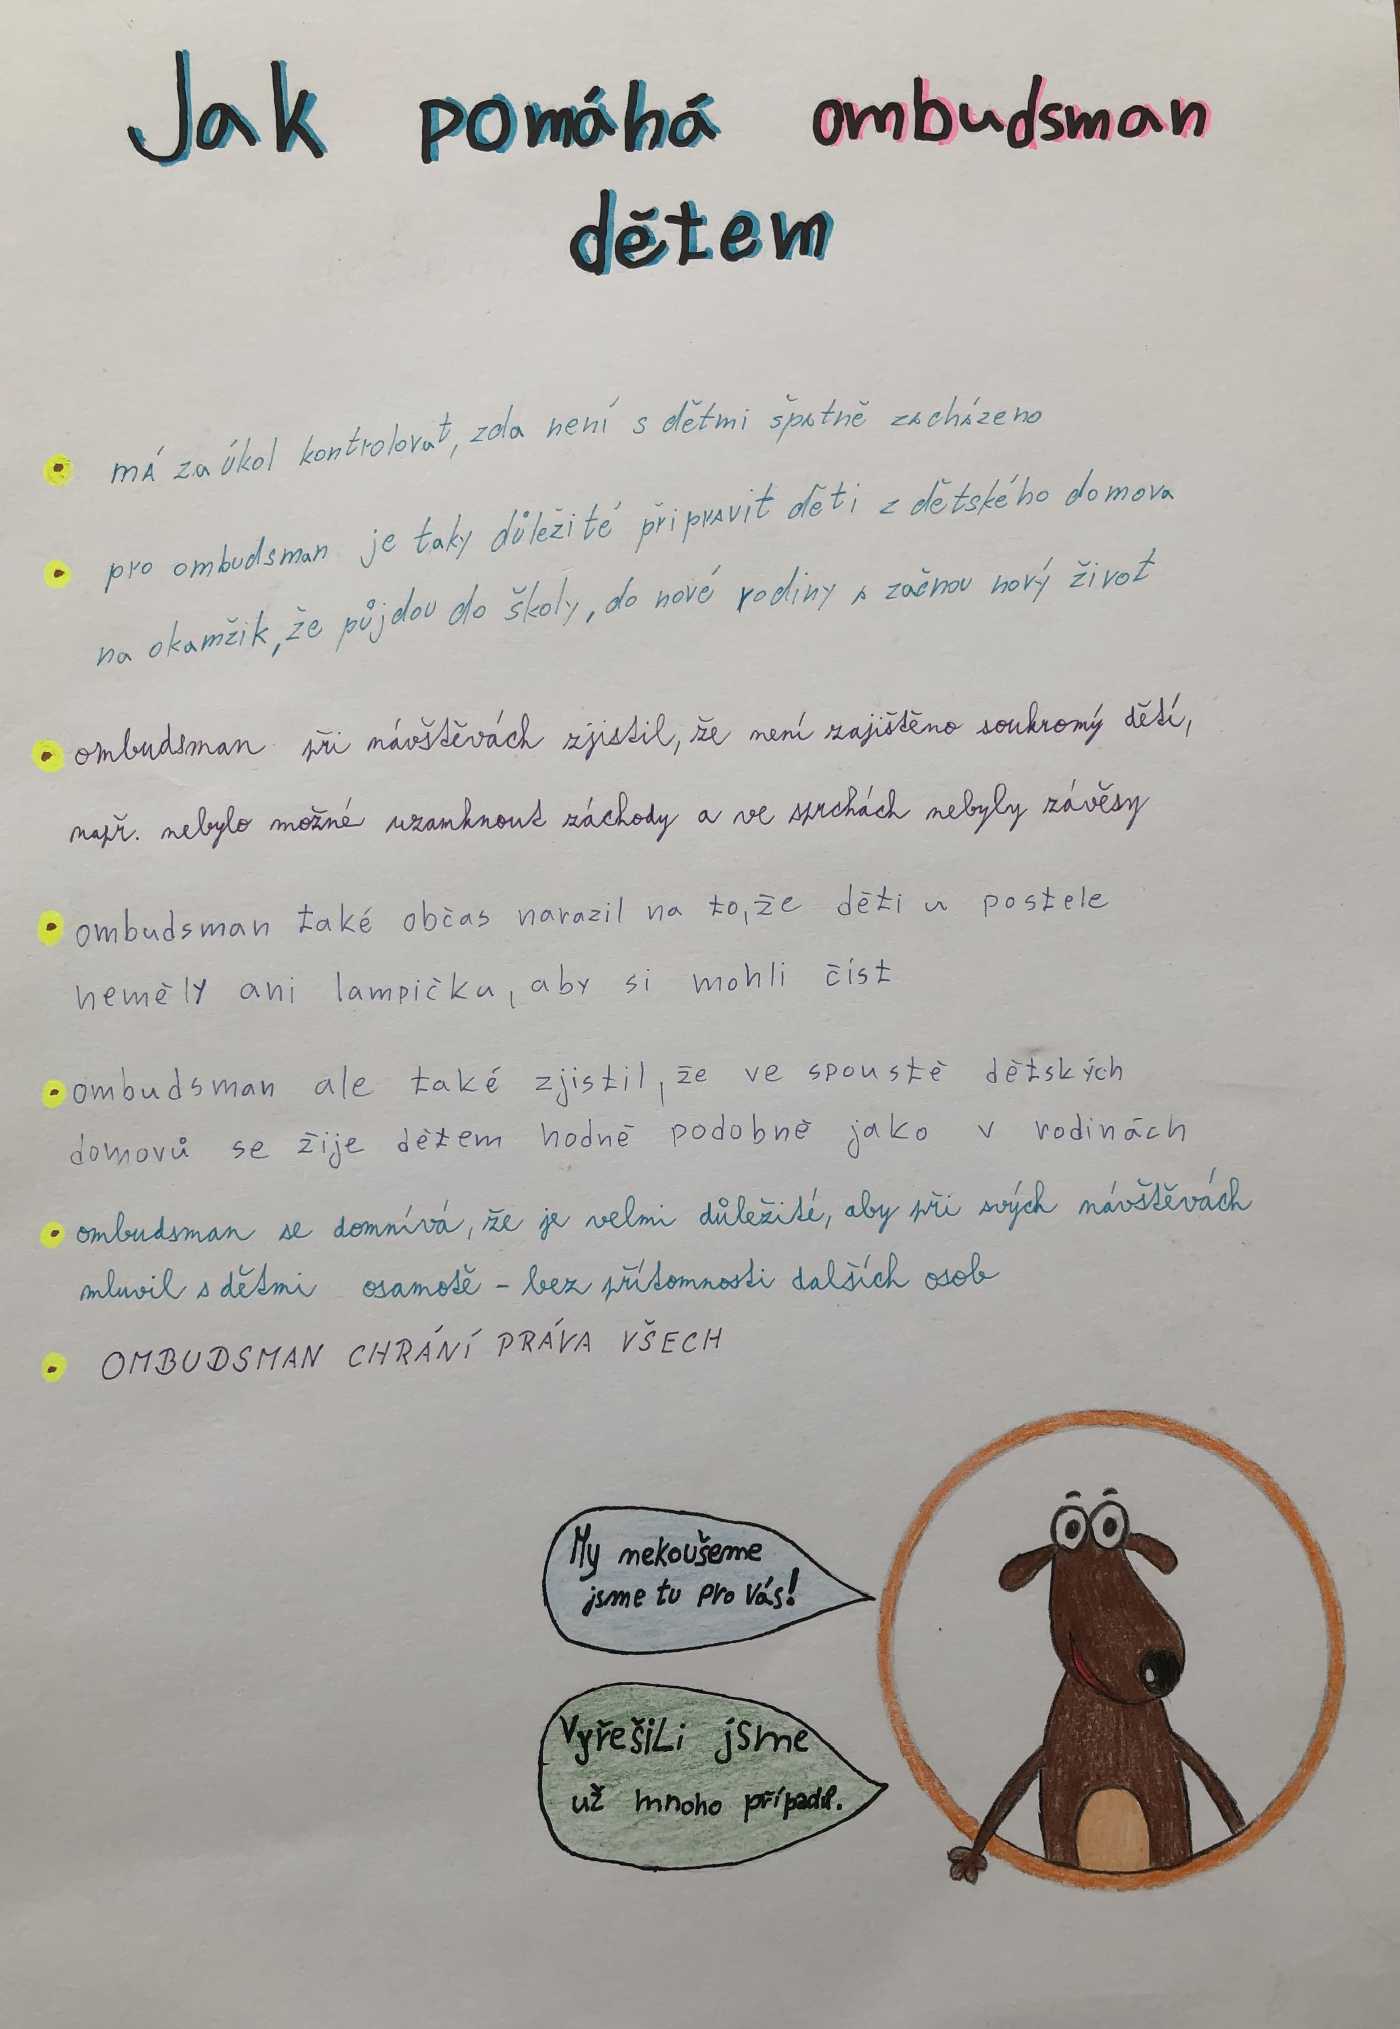 Jak pomáhá ombudsman
dětem
má za úkol kontrolovat, zda není s dětmi špatně zacházeno
pro ombudsman je taky důležité připravit děti z dětského domova
na okamžik, že půjdou do školy, do nové rodiny a začnou nový život
ombudsman při návštěvách zjistil, že není zajištěno soukromý dětí,
např. nebylo možné uzamknout záchody a ve sprchách nebyly závěsy
ombudsman také občas narazil na to, že děti u postele
neměly ani lampičku, aby si mohli číst
ombudsman ale také zjistil, že ve spoustě dětských
domovů se žije dětem hodně podobně jako v rodinách
ombudsman se domnívá, že je velmi důležité, aby při svých návštěvách
mluvil s dětmi osamotě - bez přítomnosti dalších osob
OMBUDSMAN CHRÁNÍ PRÁVA VŠECH
My nekoušeme
jsme tu pro Vás!
Vyřešili jsme
už mnoho případů.